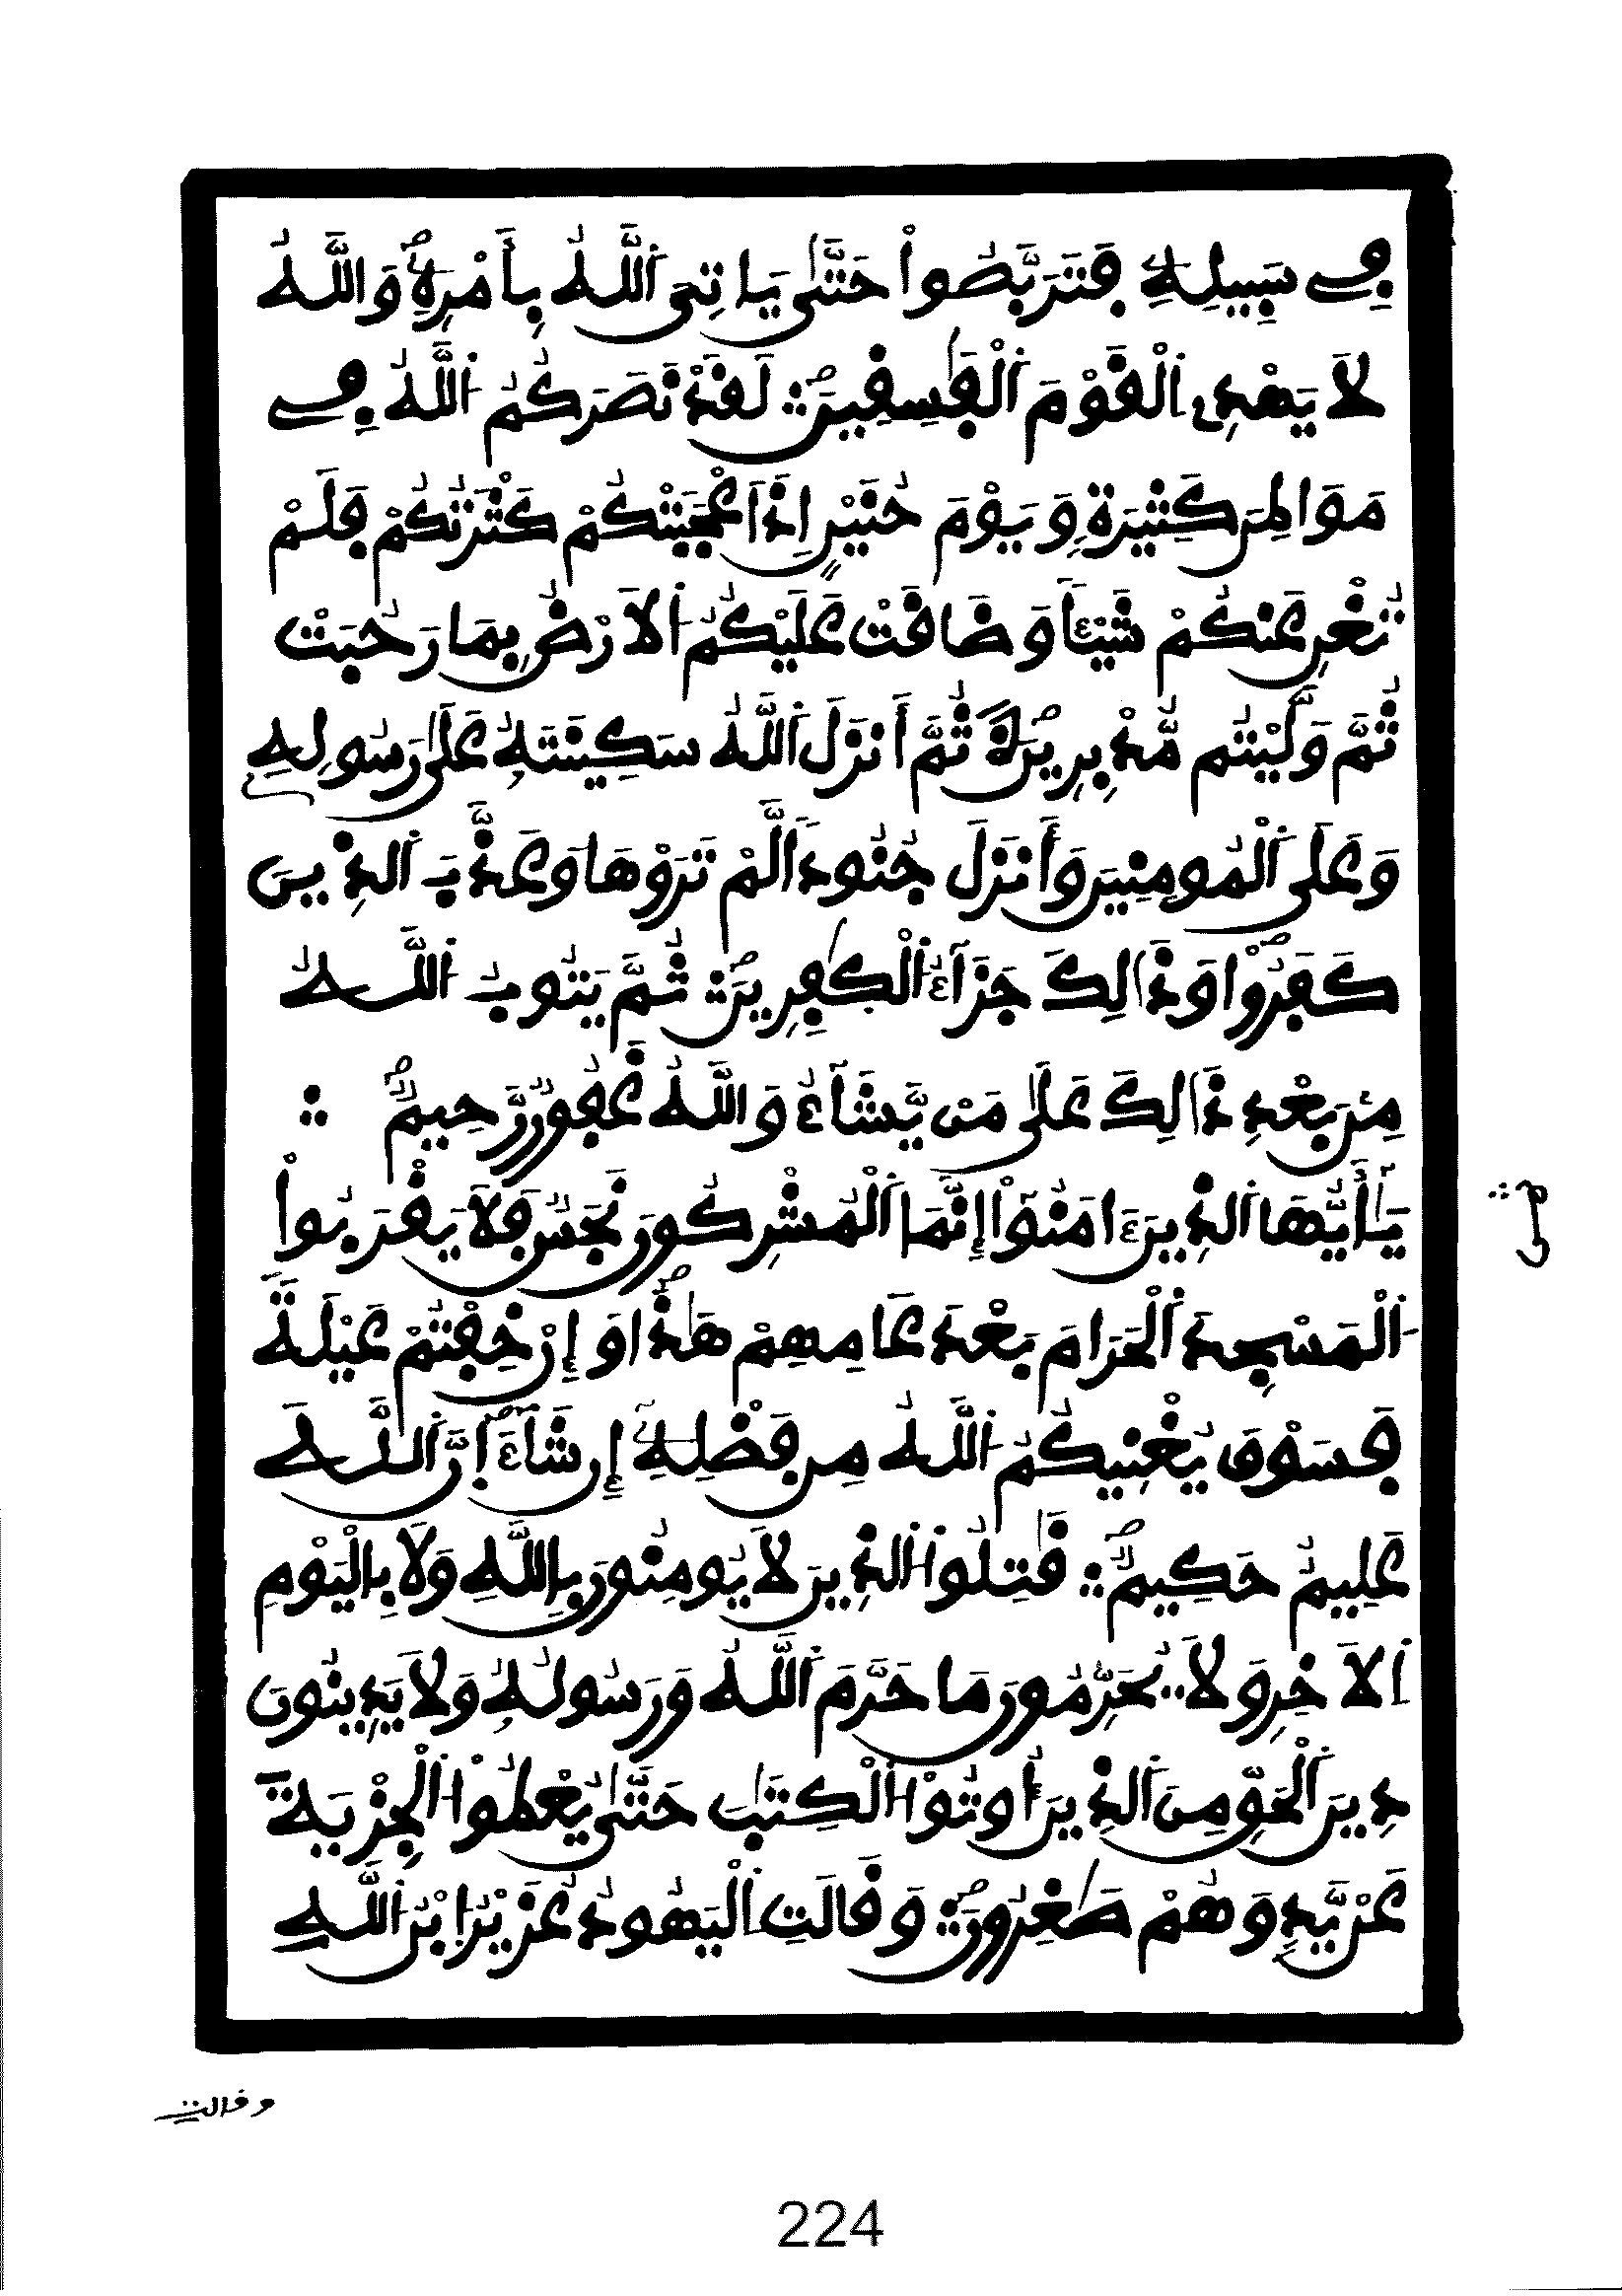 فِے سَبِيلِهِۦ فَتَرَبَّصُواْ حَتَّىٰ يَاتِىَ اَ۬للَّهُ بِأَمْرِهِۦ وَاللَّهُ
لَا يَهْدِى اِ۬لْقَوْمَ اَ۬لْفَٰسِقِينَ ؞ لَقَدْ نَصَرَكُمُ اُ۬للَّهُ فِے
مَوَاطِنَ كَثِيرَةٖ وَيَوْمَ حُنَيْنٍ اِذَ اَعْجَبَتْكُمْ كَثْرَتُكُمْ فَلَمْ
تُغْنِ عَنكُمْ شَيْـٔاٗ وَضَاقَتْ عَلَيْكُمُ اُ۬لَارْضُ بِمَا رَحُبَتْ
ثُمَّ وَلَّيْتُم مُّدْبِرِينَ ؞ ثُمَّ أَنزَلَ اَ۬للَّهُ سَكِينَتَهُۥ عَلَىٰ رَسُولِهِۦ
وَعَلَى اَ۬لْمُومِنِينَ وَأَنزَلَ جُنُوداٗ لَّمْ تَرَوْهَا وَعَذَّبَ اَ۬لذِينَ
كَفَرُواْ وَذَٰلِكَ جَزَآءُ اُ۬لْكَٰفِرِينَ ؞ ثُمَّ يَتُوبُ اُ۬للَّهُ
مِنۢ بَعْدِ ذَٰلِكَ عَلَىٰ مَنْ يَّشَآءُ وَاللَّهُ غَفُورٌ رَّحِيمٌ ؞
يَٰٓأَيُّهَا اَ۬لذِينَ ءَامَنُوٓاْ إِنَّمَا اَ۬لْمُشْرِكُونَ نَجَسٌ فَلَا يَقْرَبُواْ
اُ۬لْمَسْجِدَ اَ۬لْحَرَامَ بَعْدَ عَامِهِمْ هَٰذَا وَإِنْ خِفْتُمْ عَيْلَةٗ
فَسَوْفَ يُغْنِيكُمُ اُ۬للَّهُ مِن فَضْلِهِۦٓ إِن شَآءَ اِنَّ اَ۬للَّهَ
عَلِيمٌ حَكِيمٌ ؞ قَٰتِلُواْ اُ۬لذِينَ لَا يُومِنُونَ بِاللَّهِ وَلَا بِالْيَوْمِ
اِ۬لَاخِرِ وَلَا يُحَرِّمُونَ مَا حَرَّمَ اَ۬للَّهُ وَرَسُولُهُۥ وَلَا يَدِينُونَ
دِينَ اَ۬لْحَقِّ مِنَ اَ۬لذِينَ أُوتُواْ اُ۬لْكِتَٰبَ حَتَّىٰ يُعْطُواْ اُ۬لْجِزْيَةَ
عَنْ يَّدٖ وَهُمْ صَٰغِرُونَ ؞ وَقَالَتِ اِ۬لْيَهُودُ عُزَيْرٌ اِ۟بْنُ اُ۬للَّهِ
وقالت
224